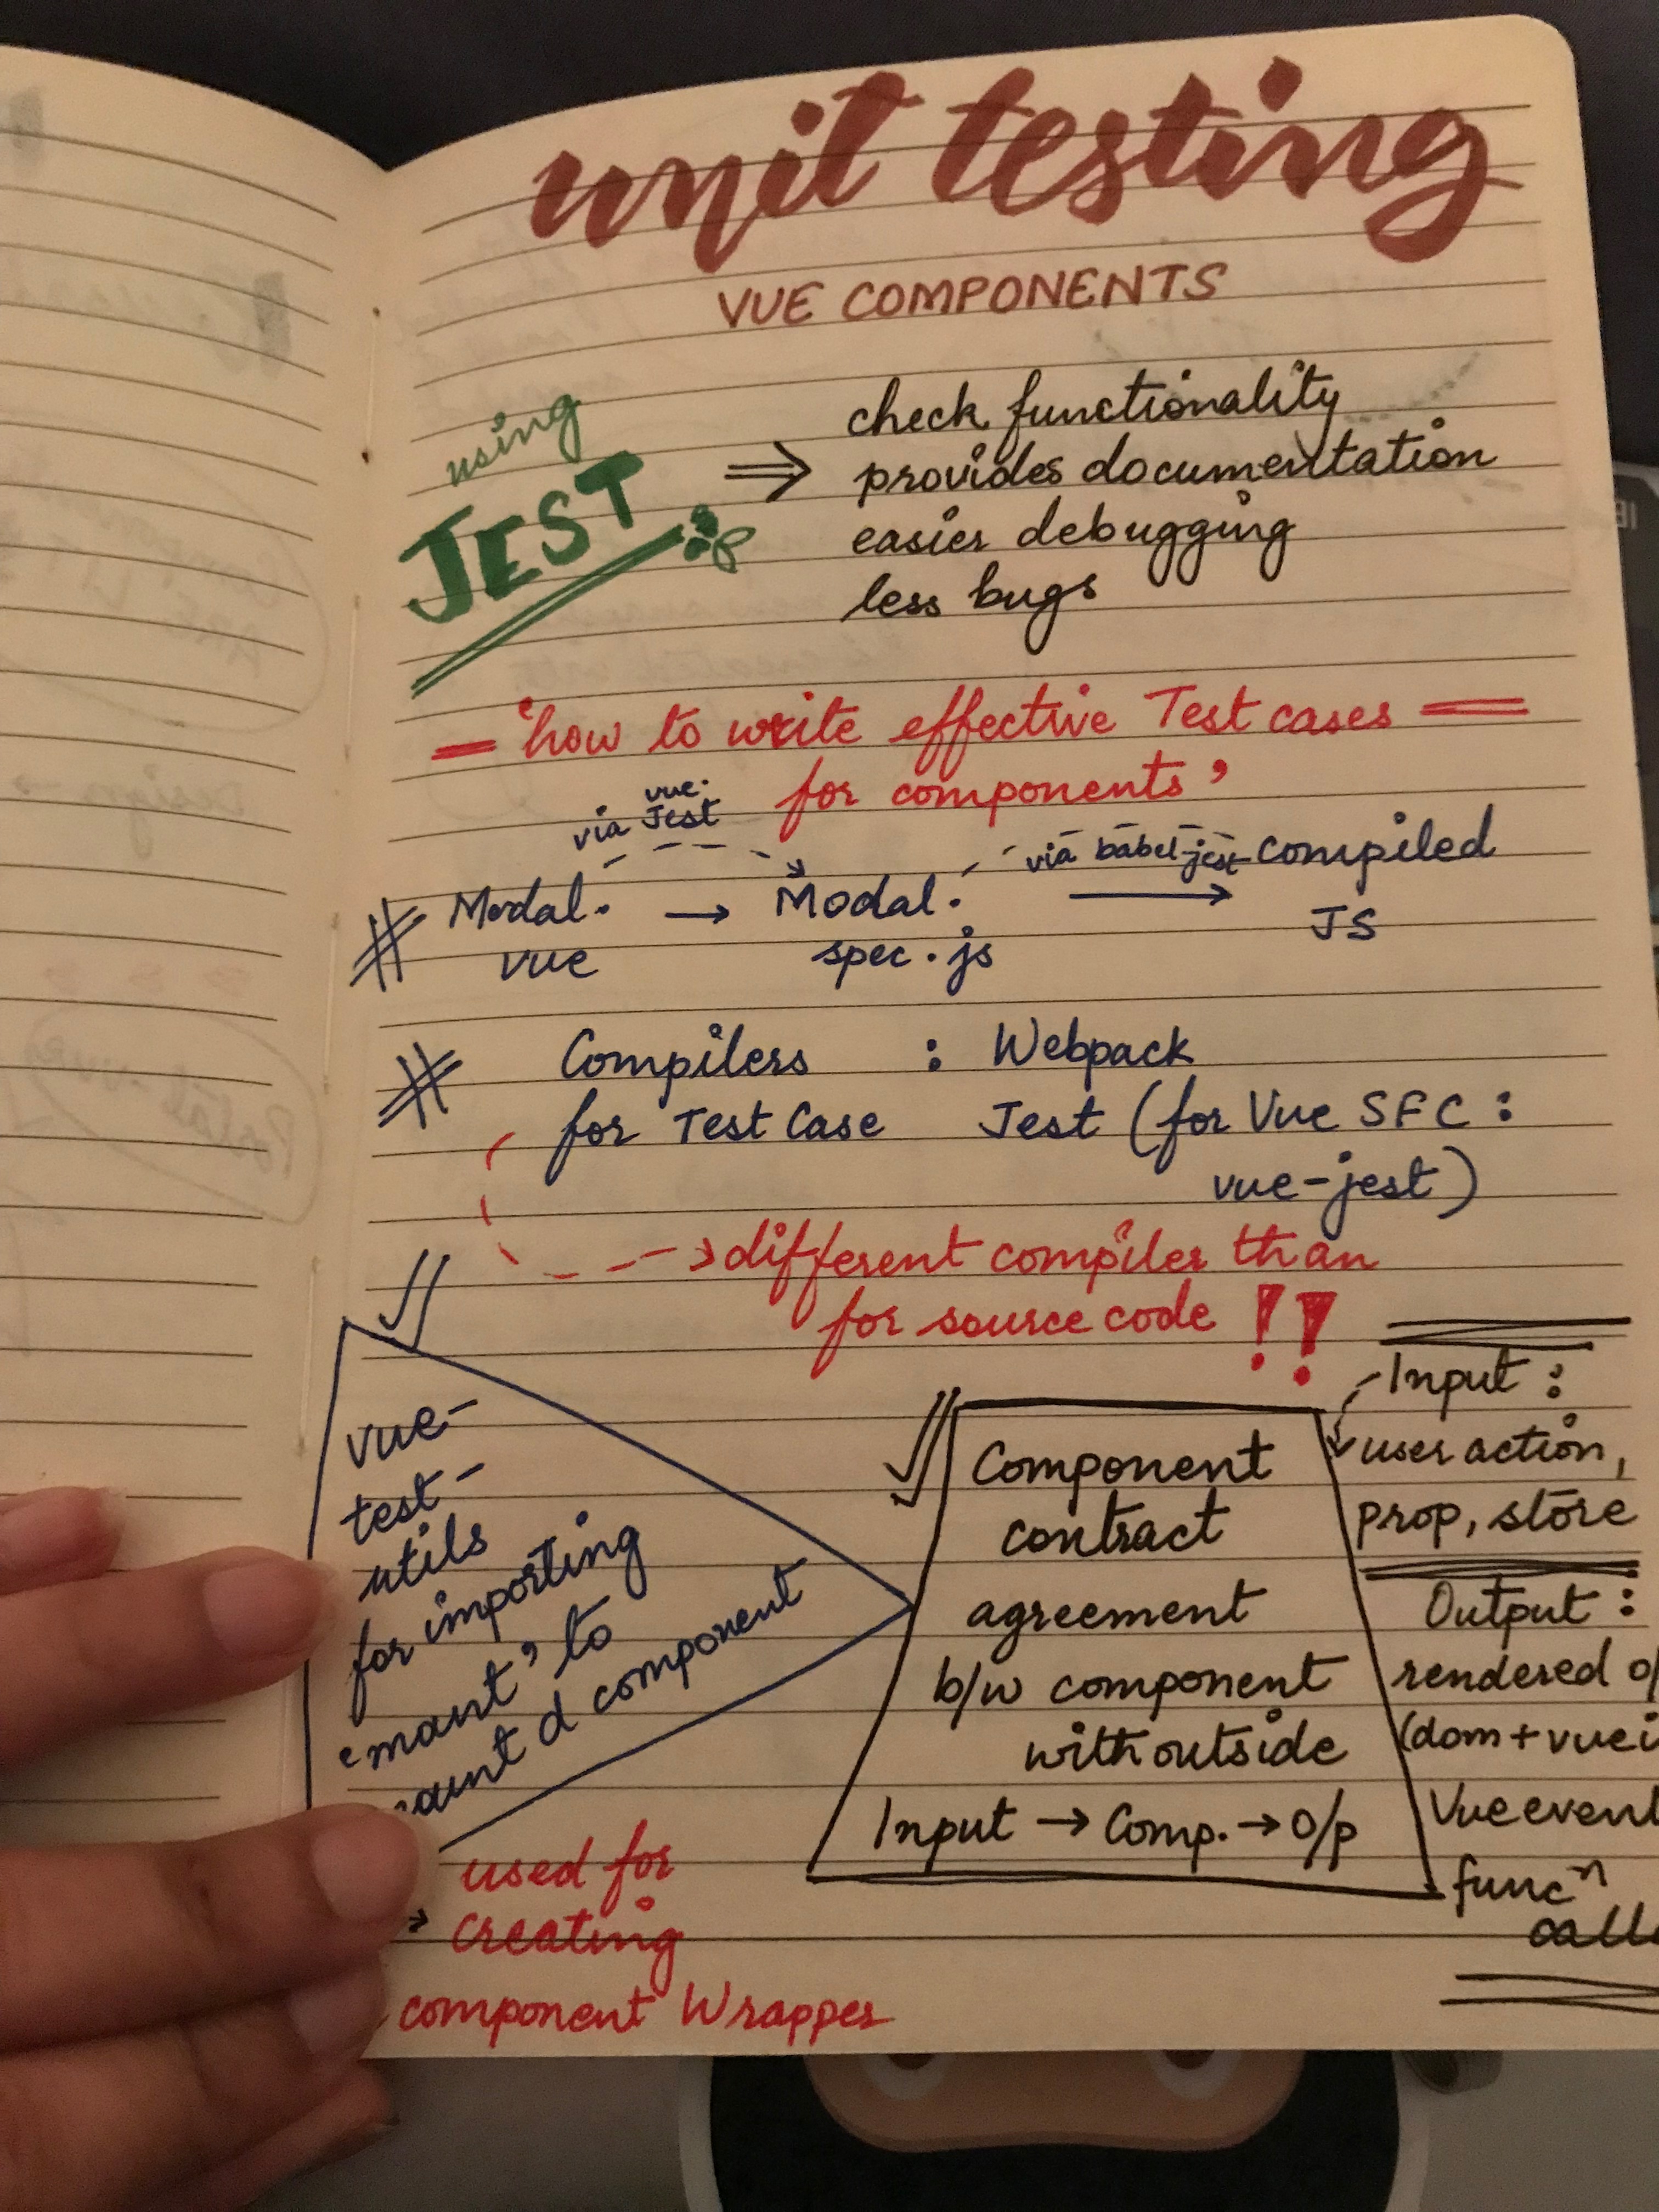 unit testing
VUE COMPONENTS
using
JEST
⇒ check functionality
provides documentation
easier debugging
less bugs
= 'how to write effective Test cases =
for components'
via vue-
Jest
via babel-
jest
# Modal. → Modal. → compiled
vue spec.js JS
# Compilers : Webpack
for Test Case Jest (for Vue SFC :
vue-jest)
→ different compiler than
for source code !!
vue-
test-
utils
for importing
'mount' to
d component
→ used for
creating
component Wrapper
Component
contract
agreement
b/w component
with outside
Input → Comp. → O/p
Input :
user action,
prop, store
Output :
rendered
(dom + vue
Vue event
funcⁿ